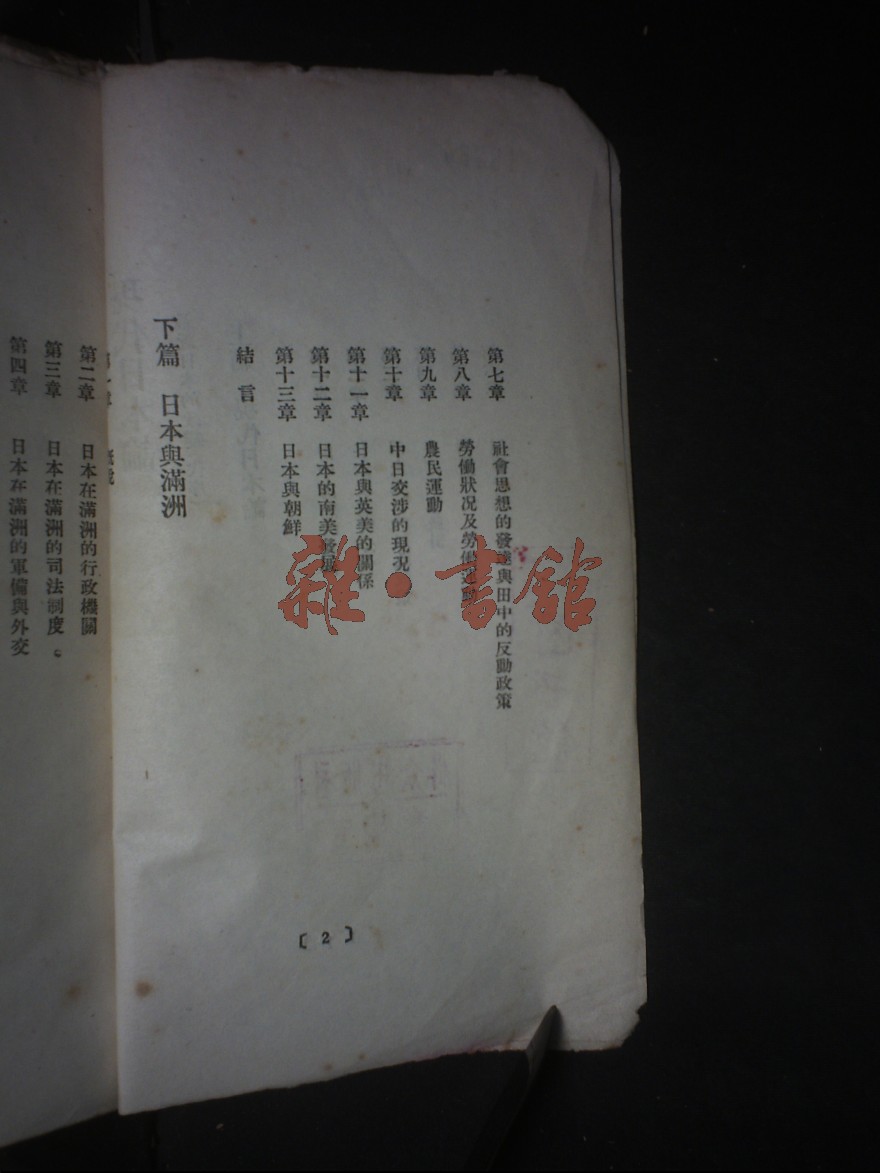 第七章 社會思想的發達與田中的反動政策
第八章 勞働狀况及勞働運動
第九章 農民運動
第十章 中日交涉的現況
第十一章 日本與英美的關係
第十二章 日本的南美發展
第十三章 日本與朝鮮
結言
下篇 日本與滿洲
第二章 日本在滿洲的行政機關
第三章 日本在滿洲的司法制度。
第四章 日本在滿洲的軍備與外交
〔2〕
雜·書館